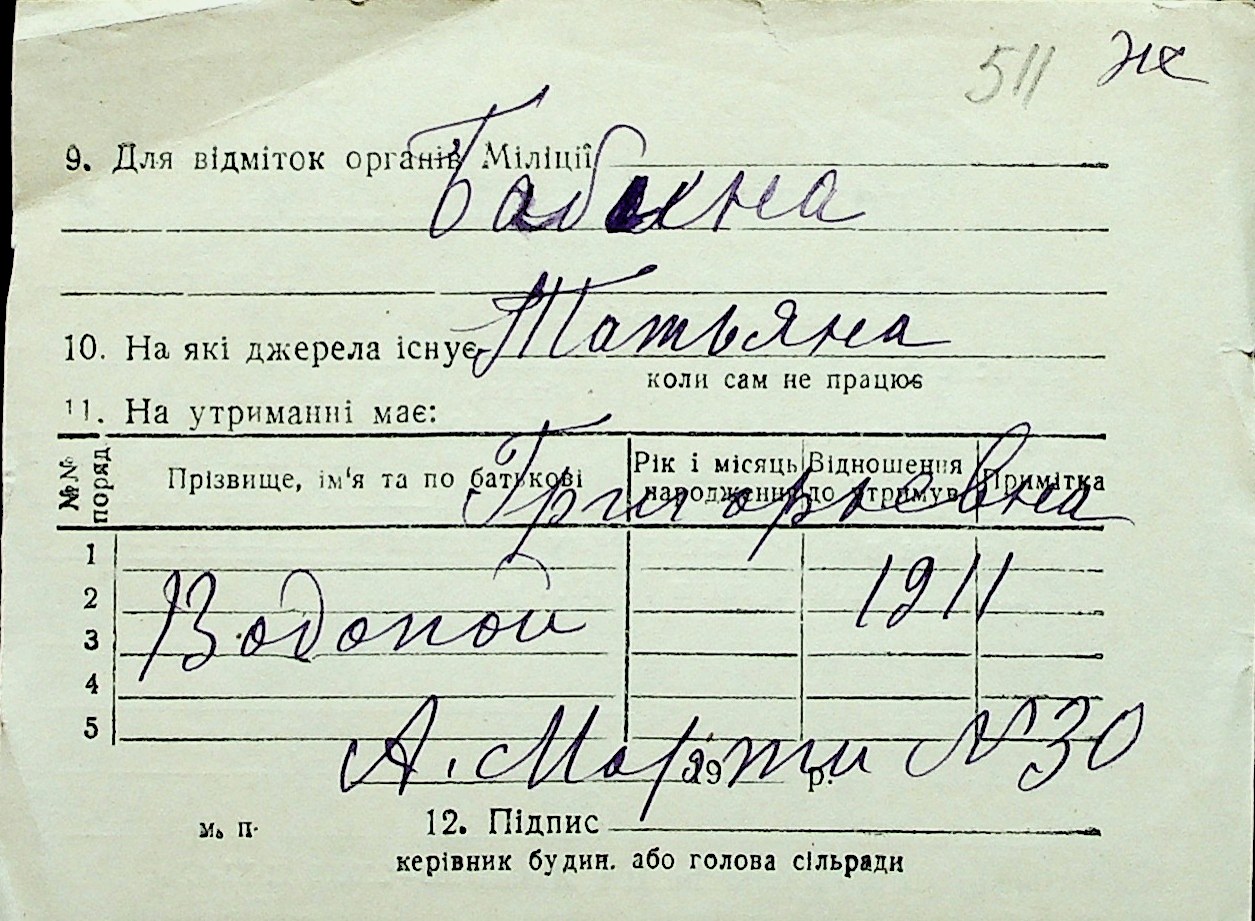 511 Ж
9. Для відміток органів Міліції
Бабкина
10. На які джерела існує Татьяна
коли сам не працює
11. На утриманні має:
№№ поряд Прізвище, ім'я та по батькові Рік і місяць народження Відношення до утримув Примітка
Григорьевна
1
2 Водопой 1911
3
4
5
А. Марти №30
19 р.
м. п. 12. Підпис
керівник будин. або голова сільради